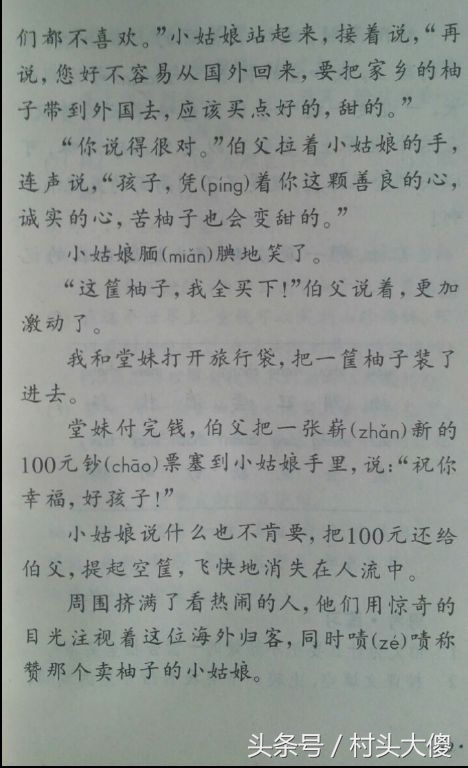 们都不喜欢。”小姑娘站起来，接着说，“再
说，您好不容易从国外回来，要把家乡的柚
子带到外国去，应该买点好的，甜的。”
“你说得很对。”伯父拉着小姑娘的手，
连声说，“孩子，凭(píng)着你这颗善良的心，
诚实的心，苦柚子也会变甜的。”
小姑娘腼(miǎn)腆地笑了。
“这筐柚子，我全买下！”伯父说着，更加
激动了。
我和堂妹打开旅行袋，把一筐柚子装了
进去。
堂妹付完钱，伯父把一张崭(zhǎn)新的
100元钞(chāo)票塞到小姑娘手里，说：“祝你
幸福，好孩子！”
小姑娘说什么也不肯要，把100元还给
伯父，提起空筐，飞快地消失在人流中。
周围挤满了看热闹的人，他们用惊奇的
目光注视着这位海外归客，同时啧(zé)啧称
赞那个卖柚子的小姑娘。
头条号 / 村头大傻